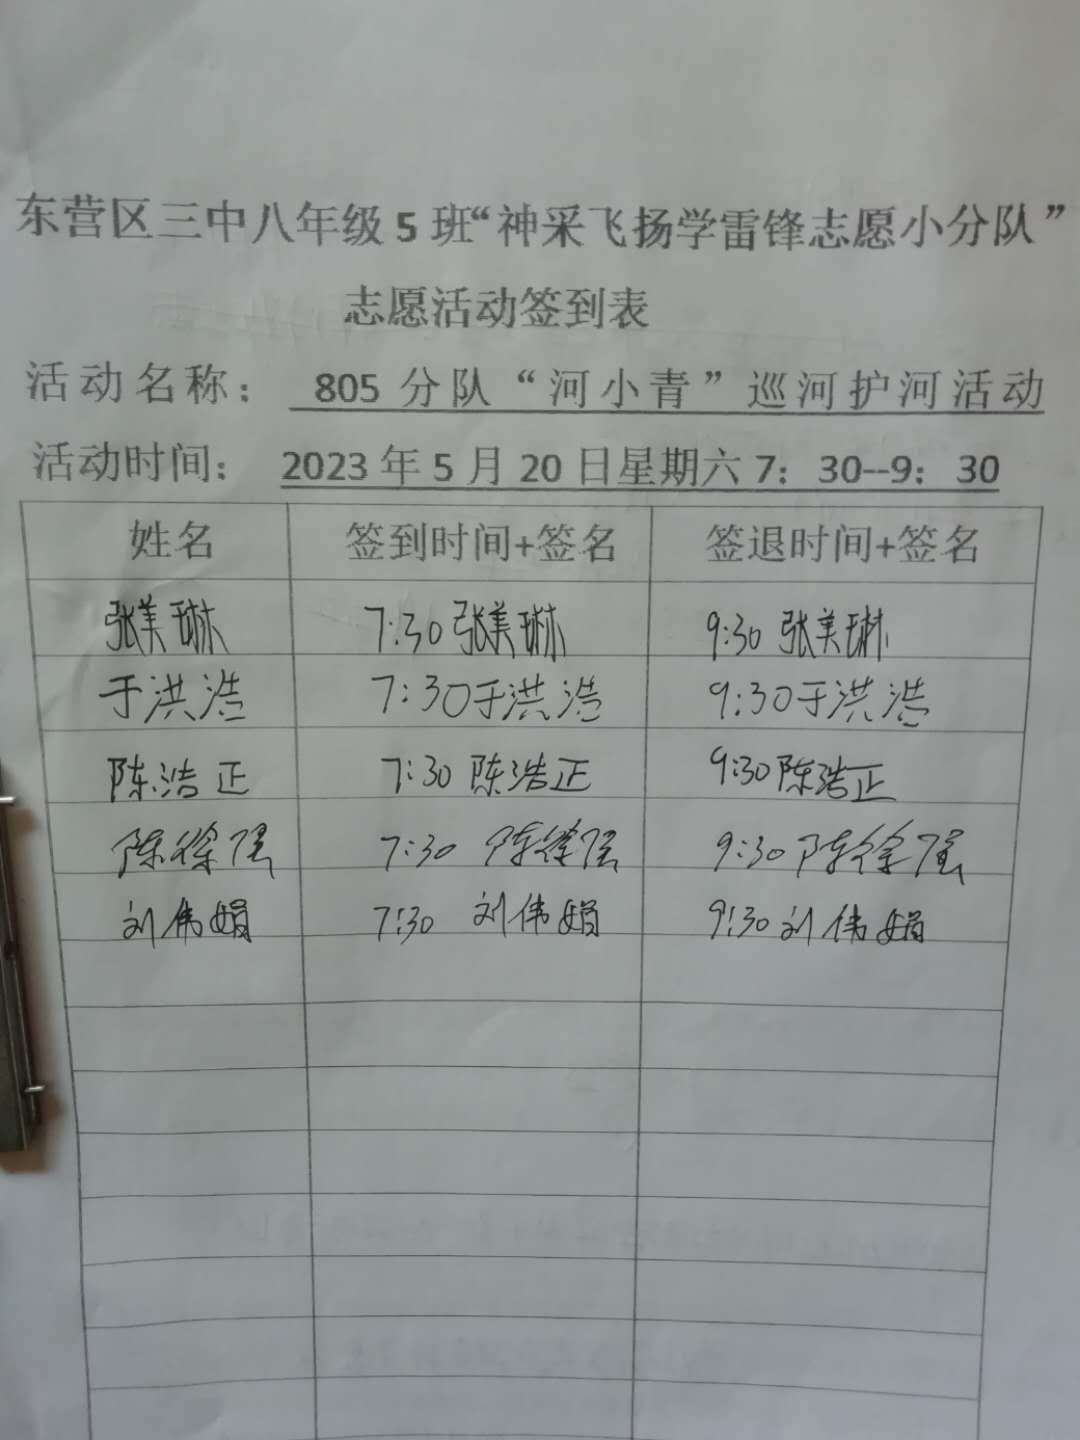 东营区三中八年级5班“神采飞扬学雷锋志愿小分队”
志愿活动签到表
活动名称： 805 分队“河小青”巡河护河活动
活动时间： 2023年5月20日星期六7：30--9：30
姓名 签到时间+签名 签退时间+签名
张美琳 7:30 张美琳 9:30 张美琳
于洪浩 7:30 于洪浩 9:30 于洪浩
陈浩正 7:30 陈浩正 9:30 陈浩正
陈徐 7:30 陈徐 9:30 陈徐
刘伟娟 7:30 刘伟娟 9:30 刘伟娟